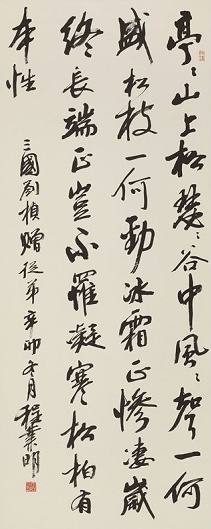 亭〻山上松瑟〻谷中風〻聲一何
盛松枝一何勁冰霜正慘淒歲
終長端正豈不罹凝寒松柏有
本性
三國劉楨贈從弟辛卯冬月程業明